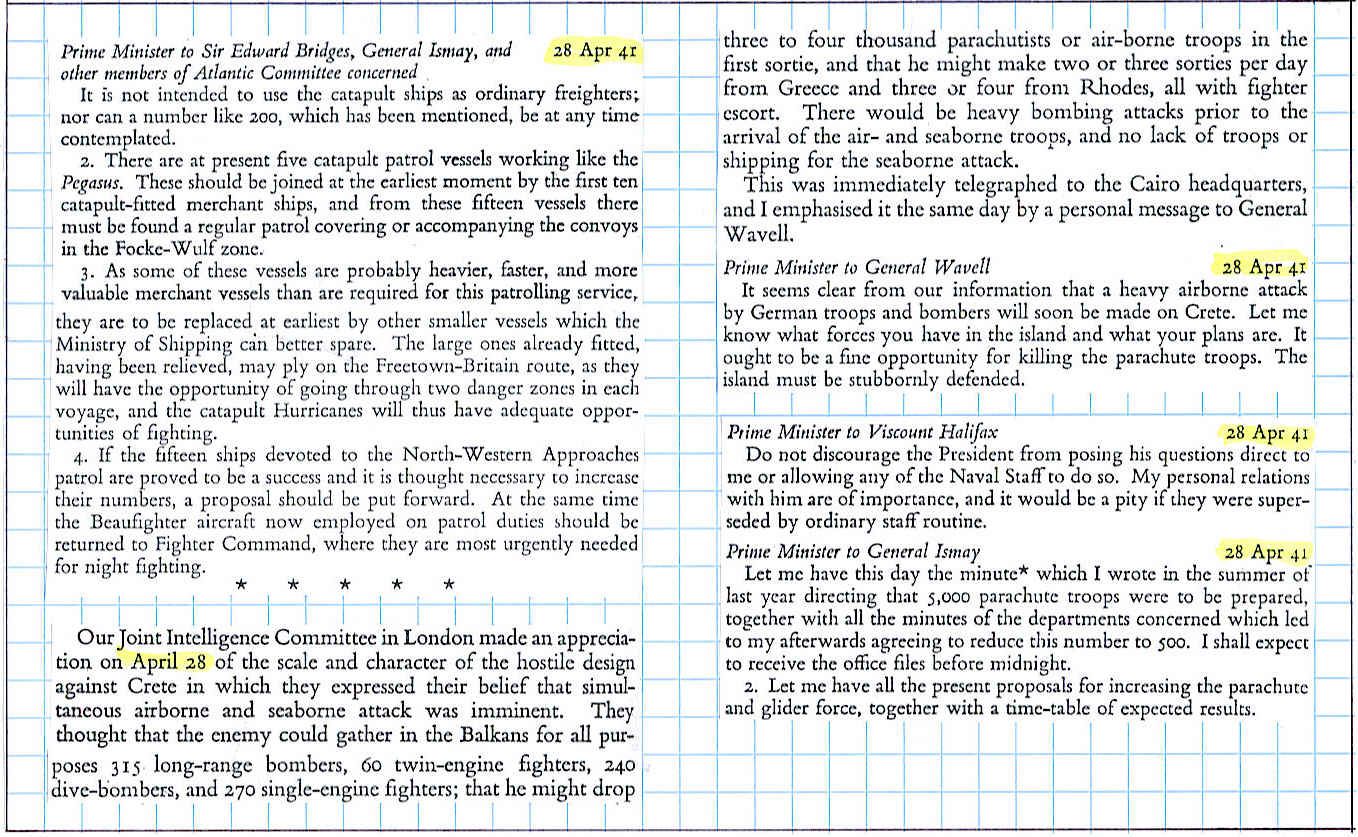 Prime Minister to Sir Edward Bridges, General Ismay, and 28 Apr 41
other members of Atlantic Committee concerned
It is not intended to use the catapult ships as ordinary freighters;
nor can a number like 200, which has been mentioned, be at any time
contemplated.
2. There are at present five catapult patrol vessels working like the
Pegasus. These should be joined at the earliest moment by the first ten
catapult-fitted merchant ships, and from these fifteen vessels there
must be found a regular patrol covering or accompanying the convoys
in the Focke-Wulf zone.
3. As some of these vessels are probably heavier, faster, and more
valuable merchant vessels than are required for this patrolling service,
they are to be replaced at earliest by other smaller vessels which the
Ministry of Shipping can better spare. The large ones already fitted,
having been relieved, may ply on the Freetown-Britain route, as they
will have the opportunity of going through two danger zones in each
voyage, and the catapult Hurricanes will thus have adequate oppor-
tunities of fighting.
4. If the fifteen ships devoted to the North-Western Approaches
patrol are proved to be a success and it is thought necessary to increase
their numbers, a proposal should be put forward. At the same time
the Beaufighter aircraft now employed on patrol duties should be
returned to Fighter Command, where they are most urgently needed
for night fighting.
* * * * *
Our Joint Intelligence Committee in London made an apprecia-
tion on April 28 of the scale and character of the hostile design
against Crete in which they expressed their belief that simul-
taneous airborne and seaborne attack was imminent. They
thought that the enemy could gather in the Balkans for all pur-
poses 315 long-range bombers, 60 twin-engine fighters, 240
dive-bombers, and 270 single-engine fighters; that he might drop
three to four thousand parachutists or air-borne troops in the
first sortie, and that he might make two or three sorties per day
from Greece and three or four from Rhodes, all with fighter
escort. There would be heavy bombing attacks prior to the
arrival of the air- and seaborne troops, and no lack of troops or
shipping for the seaborne attack.
This was immediately telegraphed to the Cairo headquarters,
and I emphasised it the same day by a personal message to General
Wavell.
Prime Minister to General Wavell 28 Apr 41
It seems clear from our information that a heavy airborne attack
by German troops and bombers will soon be made on Crete. Let me
know what forces you have in the island and what your plans are. It
ought to be a fine opportunity for killing the parachute troops. The
island must be stubbornly defended.
Prime Minister to Viscount Halifax 28 Apr 41
Do not discourage the President from posing his questions direct to
me or allowing any of the Naval Staff to do so. My personal relations
with him are of importance, and it would be a pity if they were super-
seded by ordinary staff routine.
Prime Minister to General Ismay 28 Apr 41
Let me have this day the minute* which I wrote in the summer of
last year directing that 5,000 parachute troops were to be prepared,
together with all the minutes of the departments concerned which led
to my afterwards agreeing to reduce this number to 500. I shall expect
to receive the office files before midnight.
2. Let me have all the present proposals for increasing the parachute
and glider force, together with a time-table of expected results.